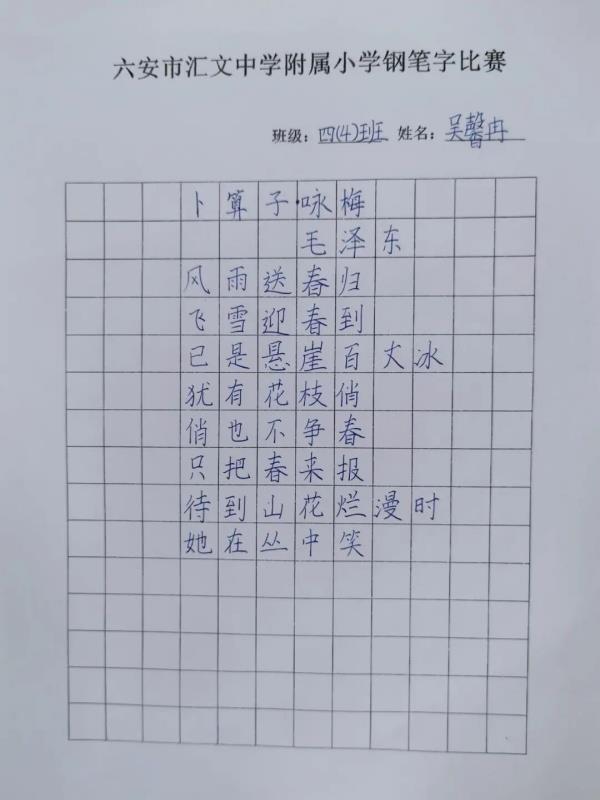 六安市汇文中学附属小学钢笔字比赛
班级：四(4)班 姓名：吴馨冉
卜算子·咏梅
毛泽东
风雨送春归
飞雪迎春到
已是悬崖百丈冰
犹有花枝俏
俏也不争春
只把春来报
待到山花烂漫时
她在丛中笑